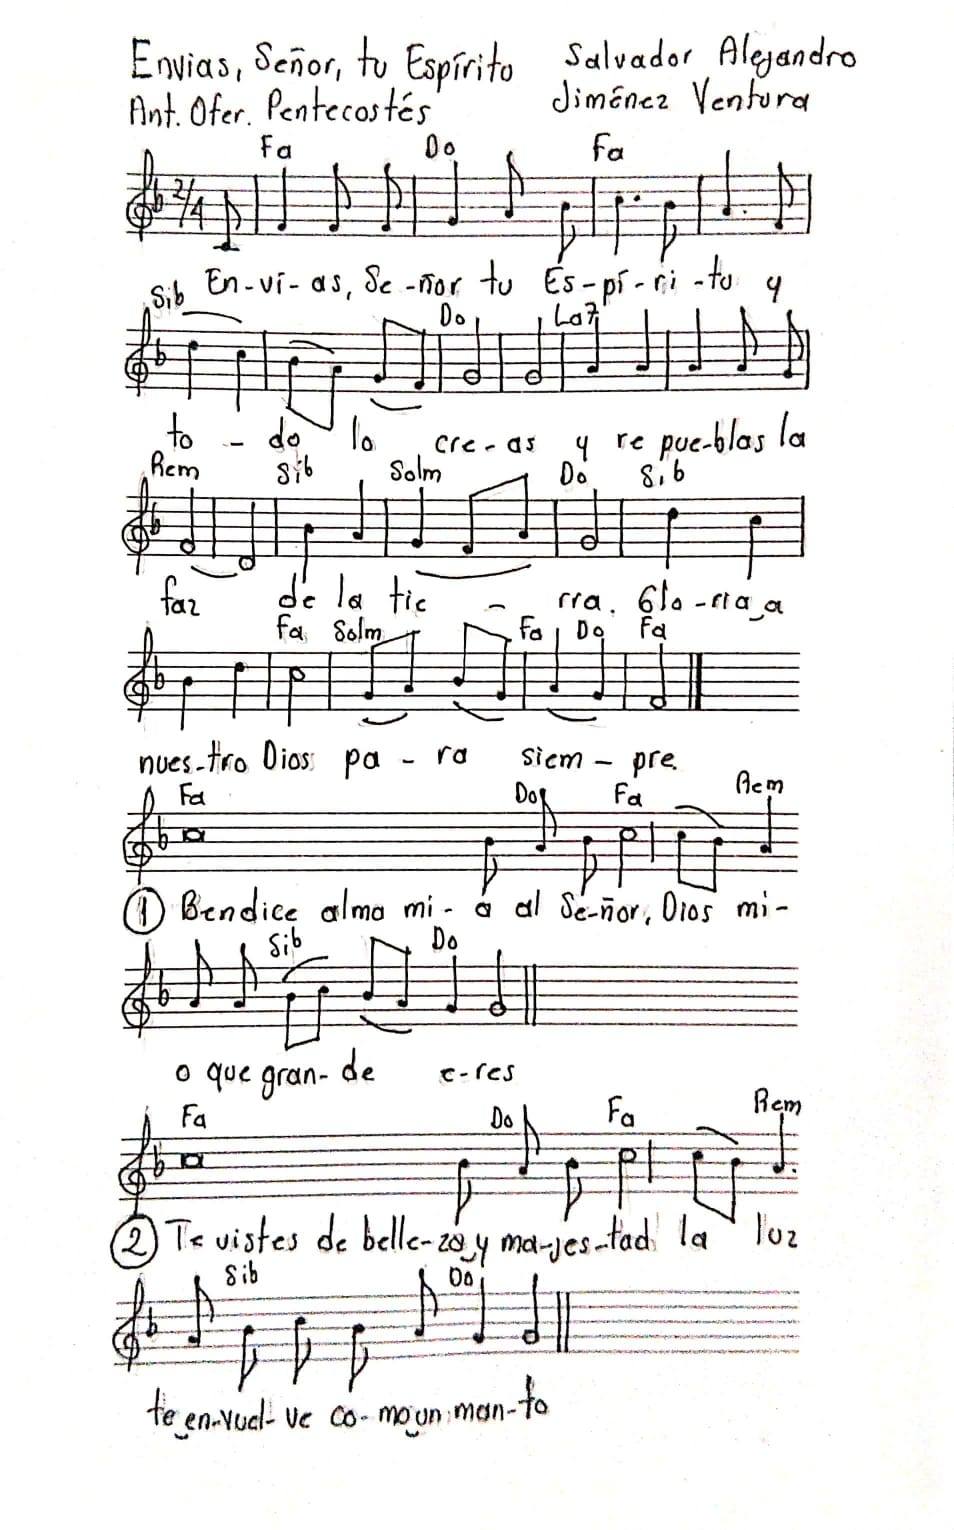 Envias, Señor, tu Espírito Salvador Alejandro
Ant. Ofer. Pentecostés Jiménez Ventura
Fa Do Fa
2/4
En-ví-as, Se-ñor tu Es-pí-ri-tu y
Sib Do La7
to-do lo cre-as y re pue-blas la
Rem Sib Solm Do Sib
faz de la tie-rra. Glo-ria_a
Fa Solm Fa Do Fa
nues-tro Dios pa-ra siem-pre.
Fa Do Fa Rem
1 Bendice alma mi-a al Se-ñor, Dios mi-
Sib Do
o que gran-de e-res
Fa Do Fa Rem
2 Te vistes de belle-za_y ma-jes-tad la luz
Sib Do
te_en-vuel-ve co-mo_un man-to